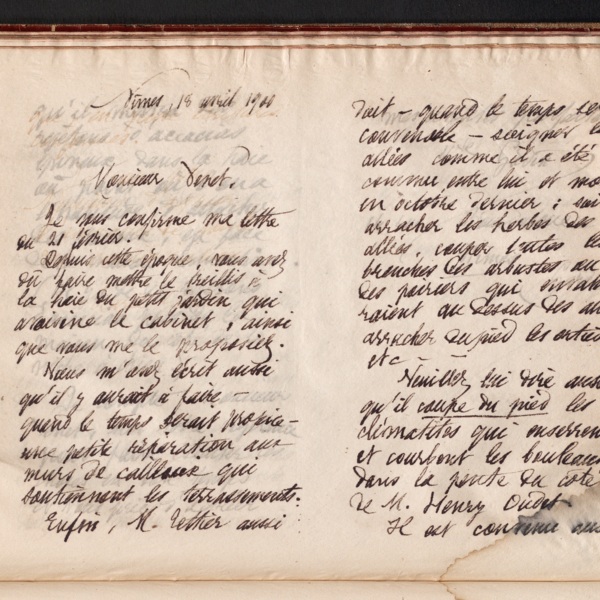 Nîmes, 18 avril 1900
Monsieur Denet.
Je vous confirme ma lettre
du 21 février.
Depuis cette époque vous avez
dû faire mettre le treillis à
la haie du petit jardin qui
avoisine le cabinet ; ainsi
que vous me le proposiez.
Vous m'avez écrit aussi
qu'il y aurait à faire —
quand le temps serait propice —
une petite réparation aux
murs de cailloux qui
soutiennent les terrassements.
Enfin, M. Tettier aussi
doit – quand le temps se
convenable – soigner le
allées comme il a été
convenu entre lui et mo
en octobre dernier ; soi
arracher les herbes des
allées, couper toutes le
branches des arbustes ou
des poiriers qui envah
raient au dessus des al
arracher du pied les ortie
etc — —
Veuillez lui dire auss
qu'il coupe du pied les
clématites qui enserren
et courbent les bouleau
dans la pente du côté
de M. Henry Oudet
Il est convenu